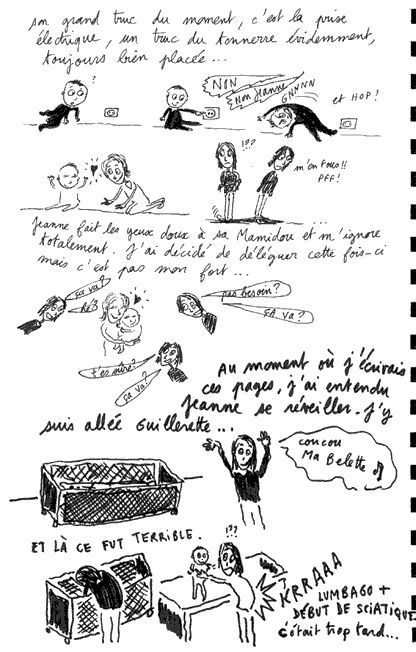 son grand truc du moment, c'est la prise
électrique, un truc du tonnerre évidemment,
toujours bien placée...
?
NON
Non Jeanne
GNNNN
et HOP!
!??
m'en fous!!
PFF!
Jeanne fait les yeux doux à sa Mamidou et m'ignore
totalement. J'ai décidé de déléguer cette fois-ci
mais c'est pas mon fort...
ça va?
pas besoin?
ça va?
t'es sûre?
ça va?
Au moment où j'écrirais
ces pages, j'ai entendu
Jeanne se réveiller. J'y
suis allée guillerette...
coucou
Ma Belette
ET LÀ CE FUT TERRIBLE.
!??
KRRAAA
LUMBAGO +
DÉBUT DE SCIATIQUE
c'était trop tard...